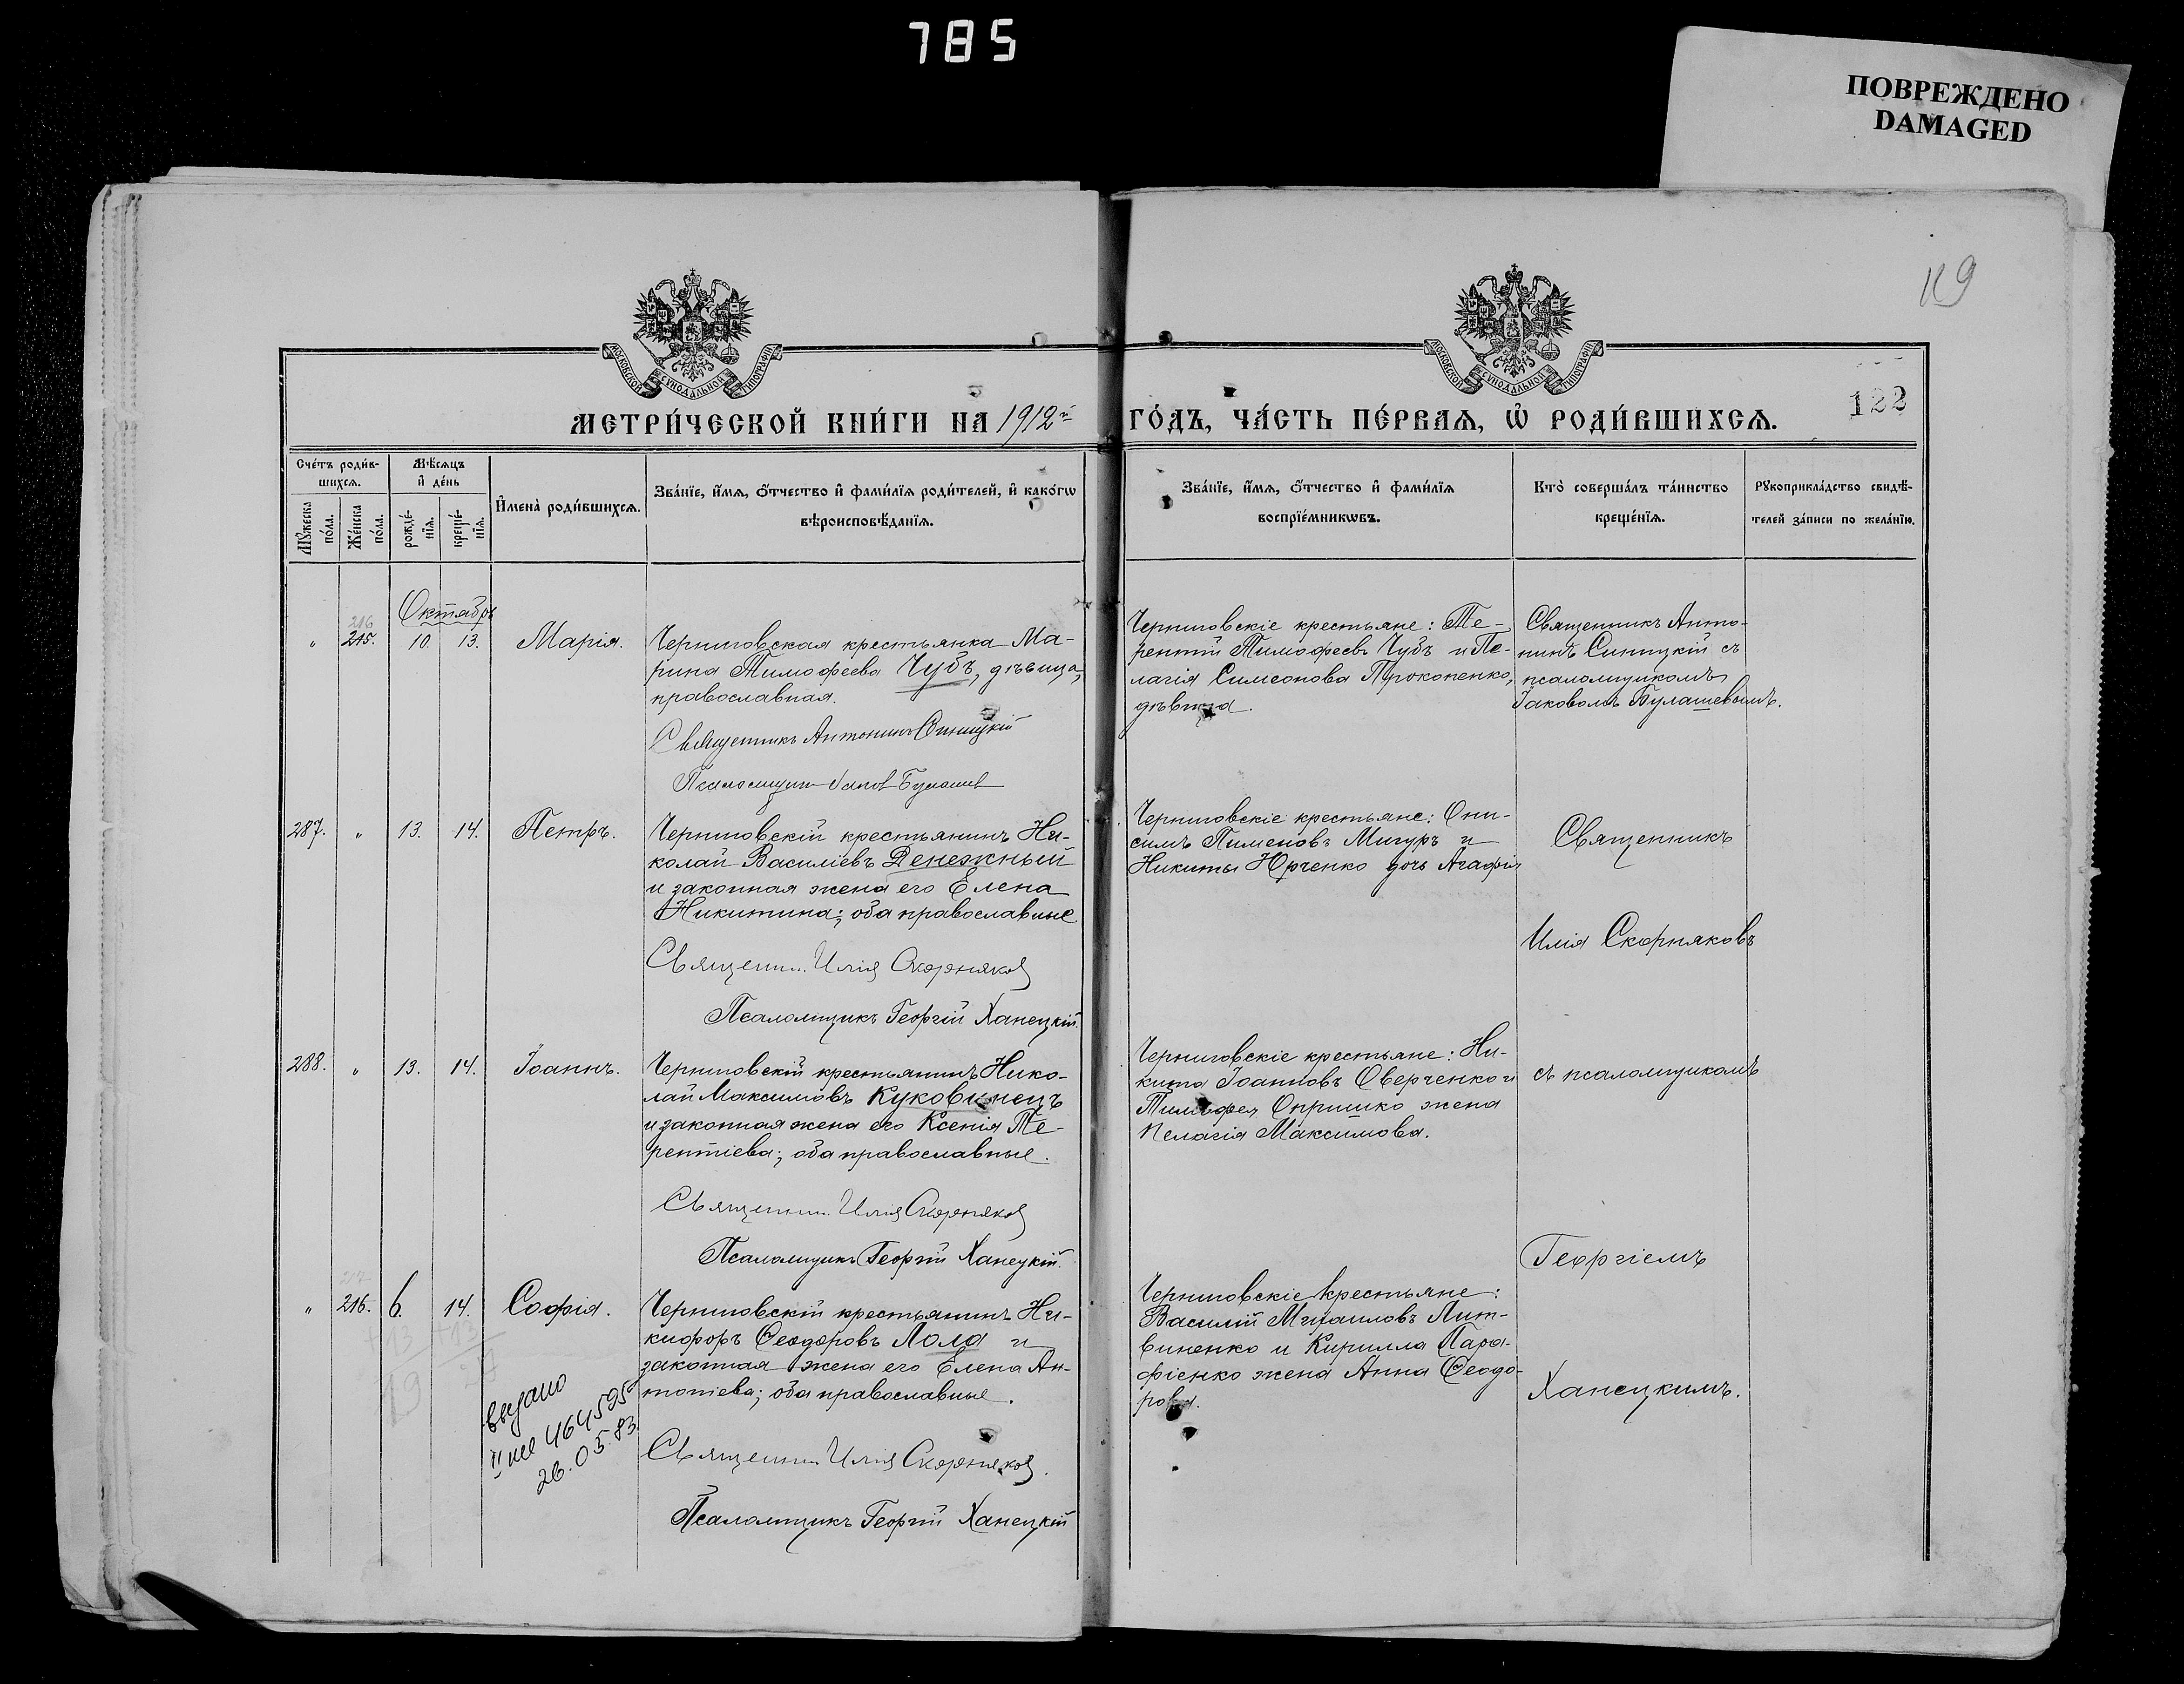 785
ПОВРЕЖДЕНО
DAMAGED
119
122
МОСКОВСКОЙ СѴНОДАЛЬНОЙ ТИПОГРАФІИ
МОСКОВСКОЙ СѴНОДАЛЬНОЙ ТИПОГРАФІИ
МЕТРИ́ЧЕСКОЙ КНИ́ГИ НА 1912й ГО́ДЪ, ЧА́СТЬ ПЕ́РВАЯ, Ѡ РОДИ́ВШИХСЯ.
Сче́тъ роди́в-
шихся.
Мѣ́сяцъ
и де́нь
Му́жеска
по́ла.
Же́нска
по́ла.
рожде́-
нїя.
креще́-
нїя.
Имена̀ роди́вшихся.
Зва́нїе, и́мя, о́тчество и фами́лїя роди́телей, и како́гѡ
вѣроисповѣ́данїя.
Зва́нїе, и́мя, о́тчество и фами́лїя
воспрїе́мникѡвъ.
Кто̀ соверша́лъ та́инство
креще́нїя.
Рукоприкла́дство свидѣ́-
телей за́писи по жела́нїю.
Октябрь
216
" 215. 10. 13. Марія.
Черниговская крестьянка Ма-
рина Тимофеева Чубъ, дѣвица,
православная.
Священникъ Антонинъ Синицкій
Псаломщикъ Іаков Булашев
Черниговскіе крестьяне: Те-
рентій Тимофеевъ Чубъ и Пе-
лагія Симеонова Прокопенко,
дѣвица.
Священникъ Анто-
нинъ Синицкій съ
псаломщикомъ
Іаковомъ Булашевымъ.
287. " 13. 14. Петръ.
Черниговскій крестьянинъ Ни-
колай Василіевъ Денежный
и законная жена его Елена
Никитина; оба православные
Священни. Илія Скорняков
Псаломщикъ Георгій Ханецкій.
Черниговскіе крестьяне: Они-
симъ Пименовъ Мигуръ и
Никиты Юрченко дочь Агафія
Священникъ
Илія Скорняковъ
288. " 13. 14. Іоаннъ.
Черниговскій крестьянинъ Нико-
лай Максимовъ Куковинецъ
и законная жена его Ксенія Те-
рентіева; оба православные.
Священни. Илія Скорняков
Псаломщикъ Георгій Ханецкій.
Черниговскіе крестьяне: Ни-
кита Іоанновъ Оверченко и
Тимофея Опришко жена
Пелагія Максимова.
съ псаломщикомъ
Георгіемъ
217
" 216. 6. 14. Софія.
+13 +13
19 27
выдано
26.05.83
Черниговскій крестьянинъ Ни-
кифоръ Ѳеодоровъ Лола и
законная жена его Елена Ан-
тоніева; оба православные.
Священни Илія Скорняков.
Псаломщикъ Георгій Ханецкій
Черниговскіе крестьяне:
Василій Михаиловъ Лит-
виненко и Кирилла Пара-
фіенко жена Анна Ѳеодо-
рова.
Ханецкимъ.